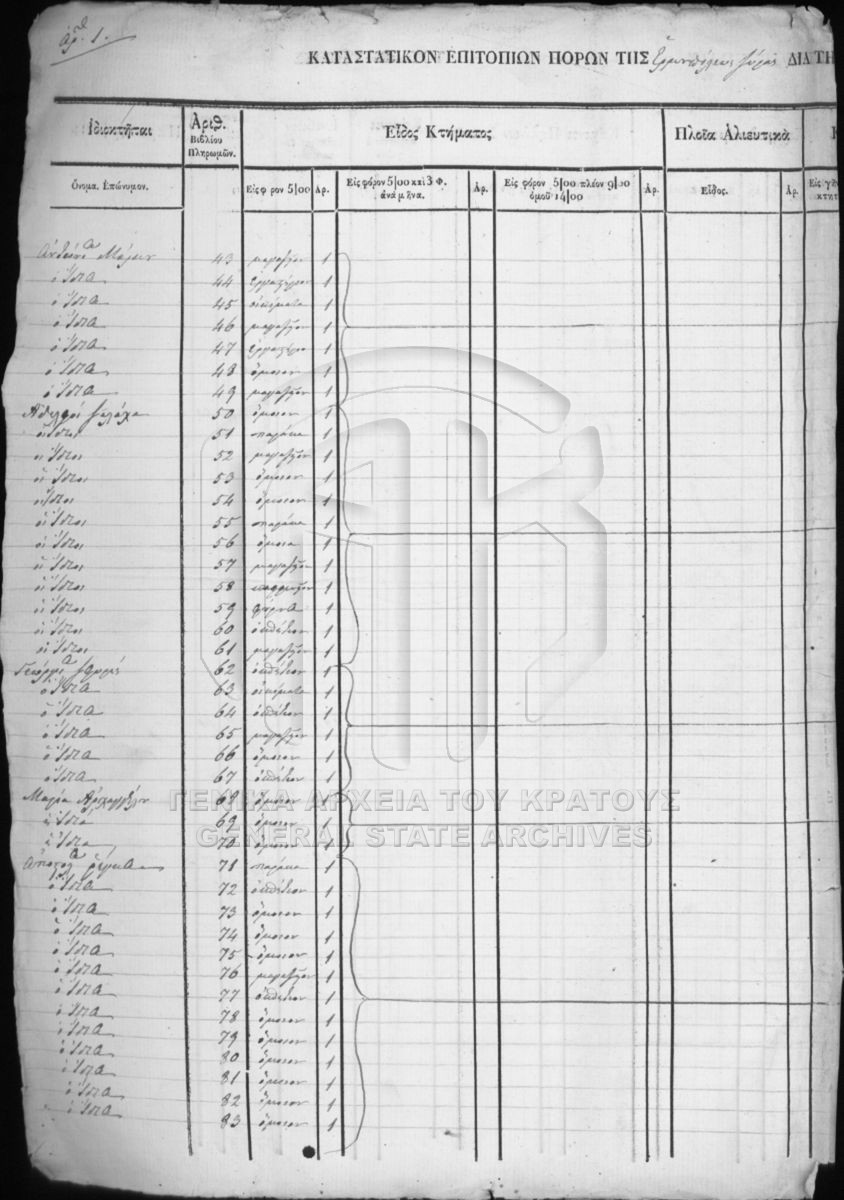 ἀρ. 1.
ΚΑΤΑΣΤΑΤΙΚΟΝ ΕΠΙΤΟΠΙΩΝ ΠΟΡΩΝ ΤΗΣ Ἑρμουπόλεως Σύρας ΔΙΑ ΤΗ
Ἰδιοκτῆται
Ἀριθ. Βιβλίου Πληρωμῶν.
Εἶδος Κτήματος
Πλοῖα Ἁλιευτικὰ
Κ
Ὄνομα. Ἐπώνυμον.
Εἰς φ ρον 5|00
Ἀρ.
Εἰς φόρον 5|00 καὶ 3 Φ. ἀνὰ μῆνα.
Ἀρ.
Εἰς φόρον 5|00 πλέον 9|00 ὁμοῦ 14|00
Ἀρ.
Εἶδος.
Ἀρ.
Εἰς γῆν κτητ
43 μαγαζεῖον 1
ὁ ἴδια 44 ἐργαστήριον 1
ὁ ἴδια 45 οἰκήματα 1
ὁ ἴδια 46 μαγαζεῖον 1
ὁ ἴδια 47 1
ὁ ἴδια 48 ὅμοιον 1
ὁ ἴδια 49 μαγαζεῖον 1
Ἀδελφοὶ 50 ὅμοιον 1
οἱ ἴδιοι 51 παράκα 1
οἱ ἴδιοι 52 μαγαζεῖον 1
οἱ ἴδιοι 53 ὅμοιον 1
οἱ ἴδιοι 54 ὅμοιον 1
οἱ ἴδιοι 55 παράκα 1
οἱ ἴδιοι 56 ὅμοια 1
οἱ ἴδιοι 57 μαγαζεῖον 1
οἱ ἴδιοι 58 1
οἱ ἴδιοι 59 1
οἱ ἴδιοι 60 ὀσπήτιον 1
οἱ ἴδιοι 61 μαγαζεῖον 1
62 ὀσπήτιον 1
ὁ ἴδια 63 οἰκήματα 1
ὁ ἴδια 64 ὀσπήτιον 1
ὁ ἴδια 65 μαγαζεῖον 1
ὁ ἴδια 66 ὅμοιον 1
ὁ ἴδια 67 ὀσπήτιον 1
Μαρία 68 ὅμοιον 1
ἡ ἴδια 69 ὅμοιον 1
ἡ ἴδια 70 ὅμοιον 1
71 παράκα 1
ὁ ἴδια 72 ὀσπήτιον 1
ὁ ἴδια 73 ὅμοιον 1
ὁ ἴδια 74 ὅμοιον 1
ὁ ἴδια 75 ὅμοιον 1
ὁ ἴδια 76 μαγαζεῖον 1
ὁ ἴδια 77 ὀσπήτιον 1
ὁ ἴδια 78 ὅμοιον 1
ὁ ἴδια 79 ὅμοιον 1
ὁ ἴδια 80 ὅμοιον 1
ὁ ἴδια 81 ὅμοιον 1
ὁ ἴδια 82 ὅμοιον 1
ὁ ἴδια 83 ὅμοιον 1
ΓΕΝΙΚΑ ΑΡΧΕΙΑ ΤΟΥ ΚΡΑΤΟΥΣ
GENERAL STATE ARCHIVES